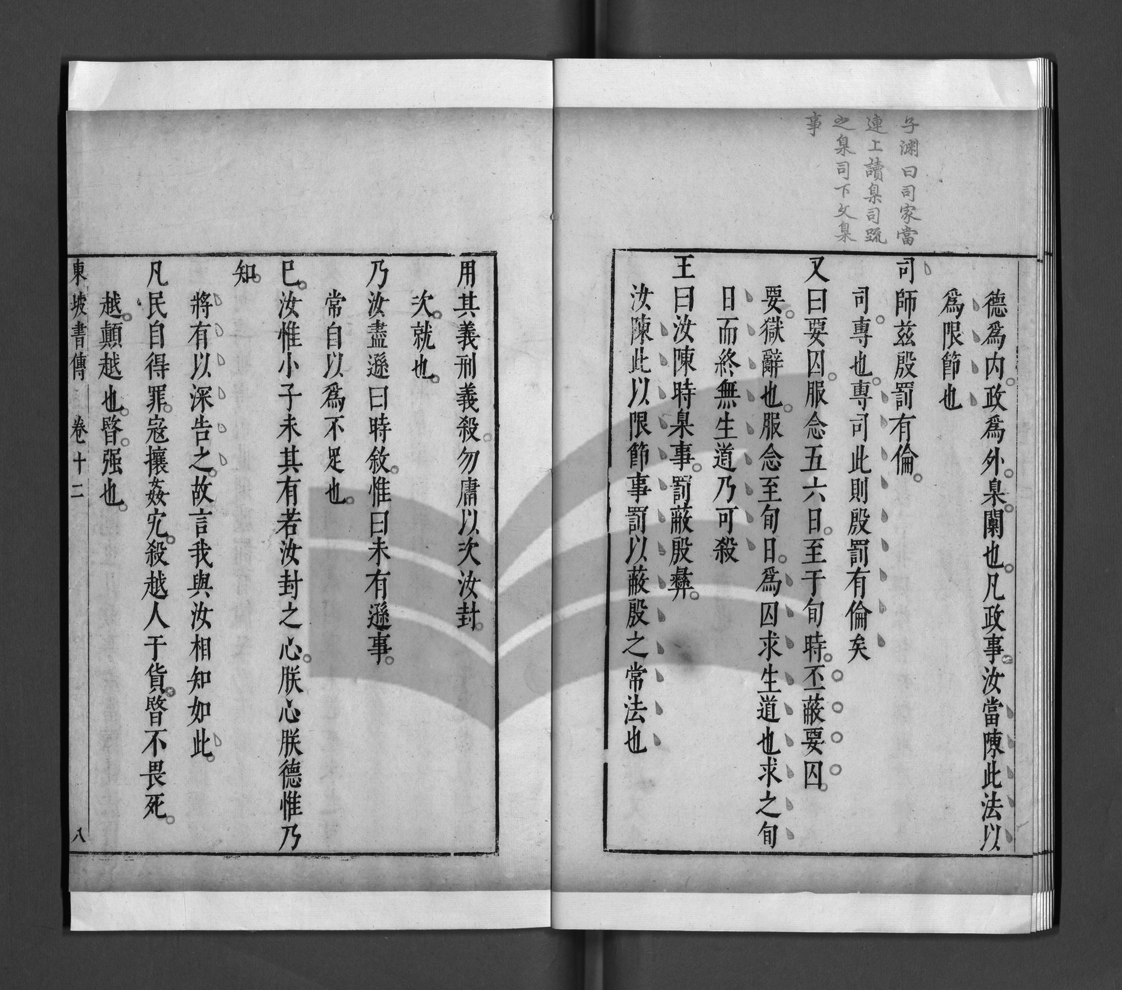 子淵曰司家當
連上讀臬司䟽
之臬司下文臬
事
德爲内政爲外臬闑也凡政事汝當陳此法以
爲限節也
司師茲殷罰有倫
司專也專司此則殷罰有倫矣
又曰要囚服念五六日至于旬時丕蔽要囚
要獄辭也服念至旬日爲囚求生道也求之旬
日而終無生道乃可殺
王曰汝陳時臬事罰蔽殷彝
汝陳此以限節事罰以蔽殷之常法也
用其義刑義殺勿庸以次汝封
次就也
乃汝盡遜曰時敘惟曰未有遜事
常自以爲不足也
已汝惟小子未其有若汝封之心朕心朕德惟乃
知
將有以深告之故言我與汝相知如此
凡民自得罪寇攘姦宄殺越人于貨暋不畏死
越顛越也暋强也
東坡書傳 卷十二 八